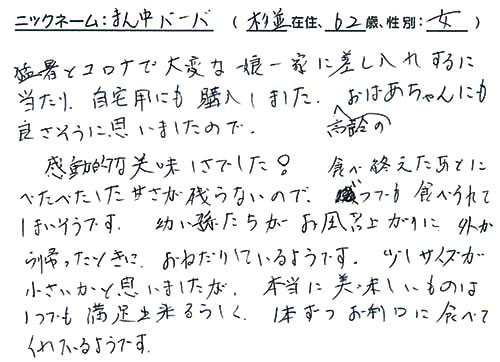 ニックネーム：まん中バーバ （ 杉並在住、62歳、性別：女 ）
猛暑とコロナで大変な娘一家に差し入れするに
当たり、自宅用にも購入しました。おばあちゃんにも
良さそうに思いましたので。 高齢の
感動的な美味しさでした！ 食べ終えたあとに
べたべたした甘さが残らないので、いつでも食べられて
しまいそうです。幼い孫たちがお風呂上がりに、外か
ら帰ったときに、おねだりしているようです。少しサイズが
小さいかと思いましたが、本当に美味しいものは
1つでも満足出来るらしく、1本ずつお利口に食べて
くれているようです。